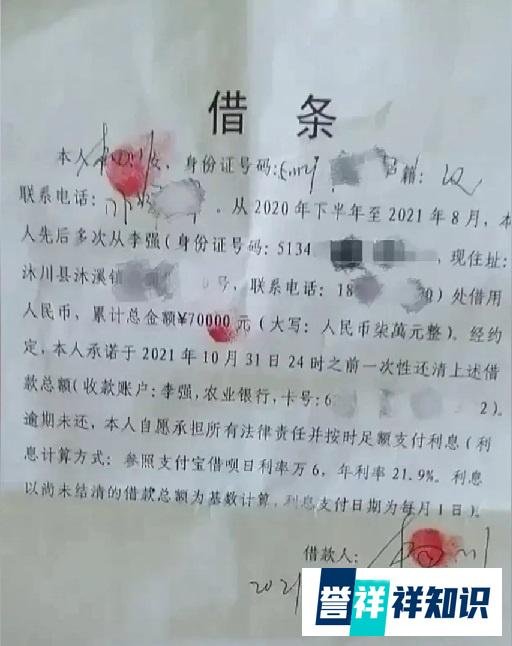 借 条
本人 女, 身份证号码: 籍: 汉
联系电话: 。从2020年下半年至2021年8月,本
人先后多次从李强(身份证号码: 5134 ,现住址:
沐川县沐溪镇 号,联系电话: 18 0)处借用
人民币,累计总金额¥70000元(大写:人民币柒萬元整)。经约
定,本人承诺于2021年10月31日24时之前一次性还清上述借
款总额(收款账户:李强,农业银行,卡号:6 2)。
逾期未还,本人自愿承担所有法律责任并按时足额支付利息(利
息计算方式:参照支付宝借呗日利率万6,年利率21.9%。利息
以尚未结清的借款总额为基数计算,利息支付日期为每月1日)。
借款人:
2021
誉祥祥知识